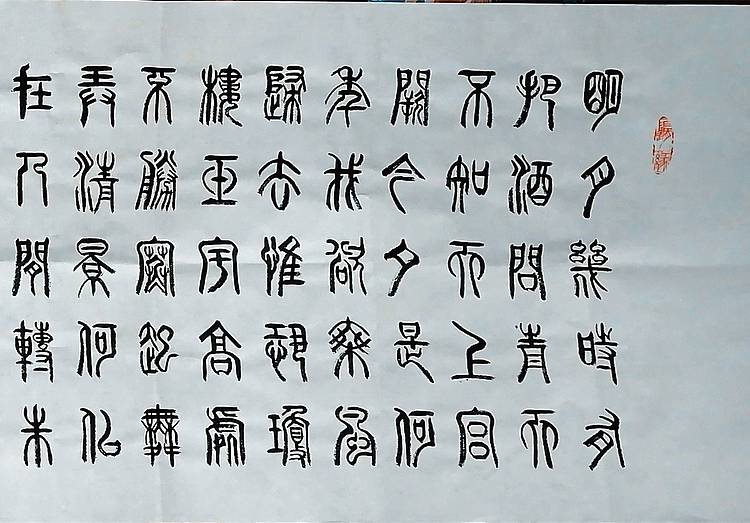 明月幾時有
把酒問青天
不知天上宮
闕今夕是何
年我欲乘風
歸去惟恐瓊
樓玉宇高處
不勝寒起舞
弄清景何似
在人間轉朱